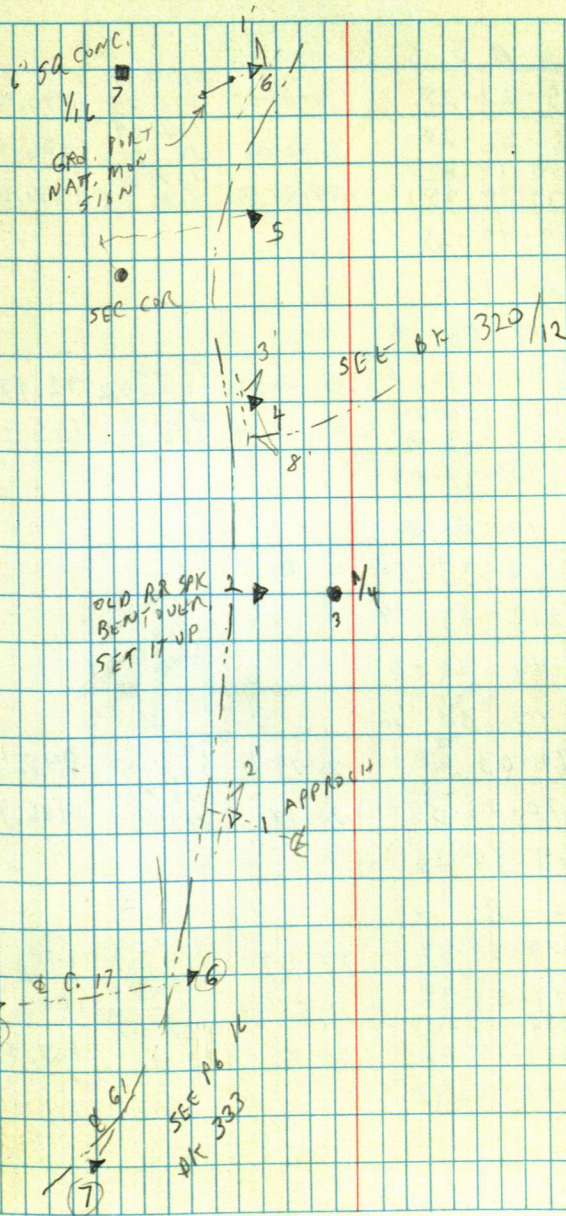 6" SQ CONC.
1/16
7
1'
6
GRD. PORT
NAT. MON
SIGN
5
SEC COR
3'
SEE BK 320/12
4
8'
OLD RR SPK
BENT OVER,
SET IT UP
2
1/4
3
2'
APPROCH
1
℄
℄ C. 17
6
℄ 61
SEE PG 16
BK 333
7